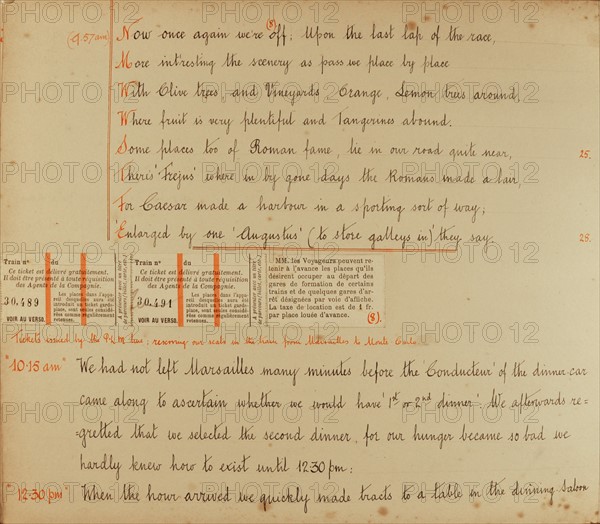 (9.57am) Now once again we're off; Upon the last lap of the race,
(8)
More intresting the scenery as pass we place by place
With Olive trees, and Vineyards, Orange, Lemon, trees around,
Where fruit is very plentiful and Tangerines abound.
Some places too of Roman fame, lie in our road quite near, 25.
Theris 'Frejus' where in by gone days the Romans made a lair,
For Caesar made a harbour in a sporting sort of way;
Enlarged by one 'Augustus' (to store galleys in) they say. 25.
Train no du
Ce ticket est délivré gratuitement.
Il doit être présenté à toute réquisition
des Agents de la Compagnie.
30.489
Les places dans l'appareil
VOIR AU VERSO.
Train no du
Ce ticket est délivré gratuitement.
Il doit être présenté à toute réquisition
des Agents de la Compagnie.
30.491
VOIR AU VERSO.
MM. les Voyageurs peuvent retenir
à l'avance les places qu'ils
désirent occuper au départ des
gares de formation de certains
trains et de quelques gares d'arrêt
désignées par voie d'affiche.
La taxe de location est de 1 fr.
par place louée d'avance.
(8).
Tickets issued by the P.L.M. Line; reserving our seats in the train from Marsailles to Monte Carlo.
"10.15 am" We had not left Marsailles many minutes before the 'Conducteur' of the dinner car
came along to ascertain whether we would have '1st or 2nd dinner'. We afterwards re-
=gretted that we selected the second dinner, for our hunger became so bad we
hardly knew how to exist until 12.30 pm:
"12.30 pm" When the hour arrived we quickly made tracts to a table in the dinning Saloon
PHOTO12